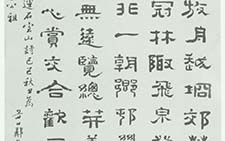 放舟越坰郊
冠林陬飛泉發
非一朝鄉邨
無遠覽總笄羨
心賞交合歡
運石室山詩己巳秋日為
公祖